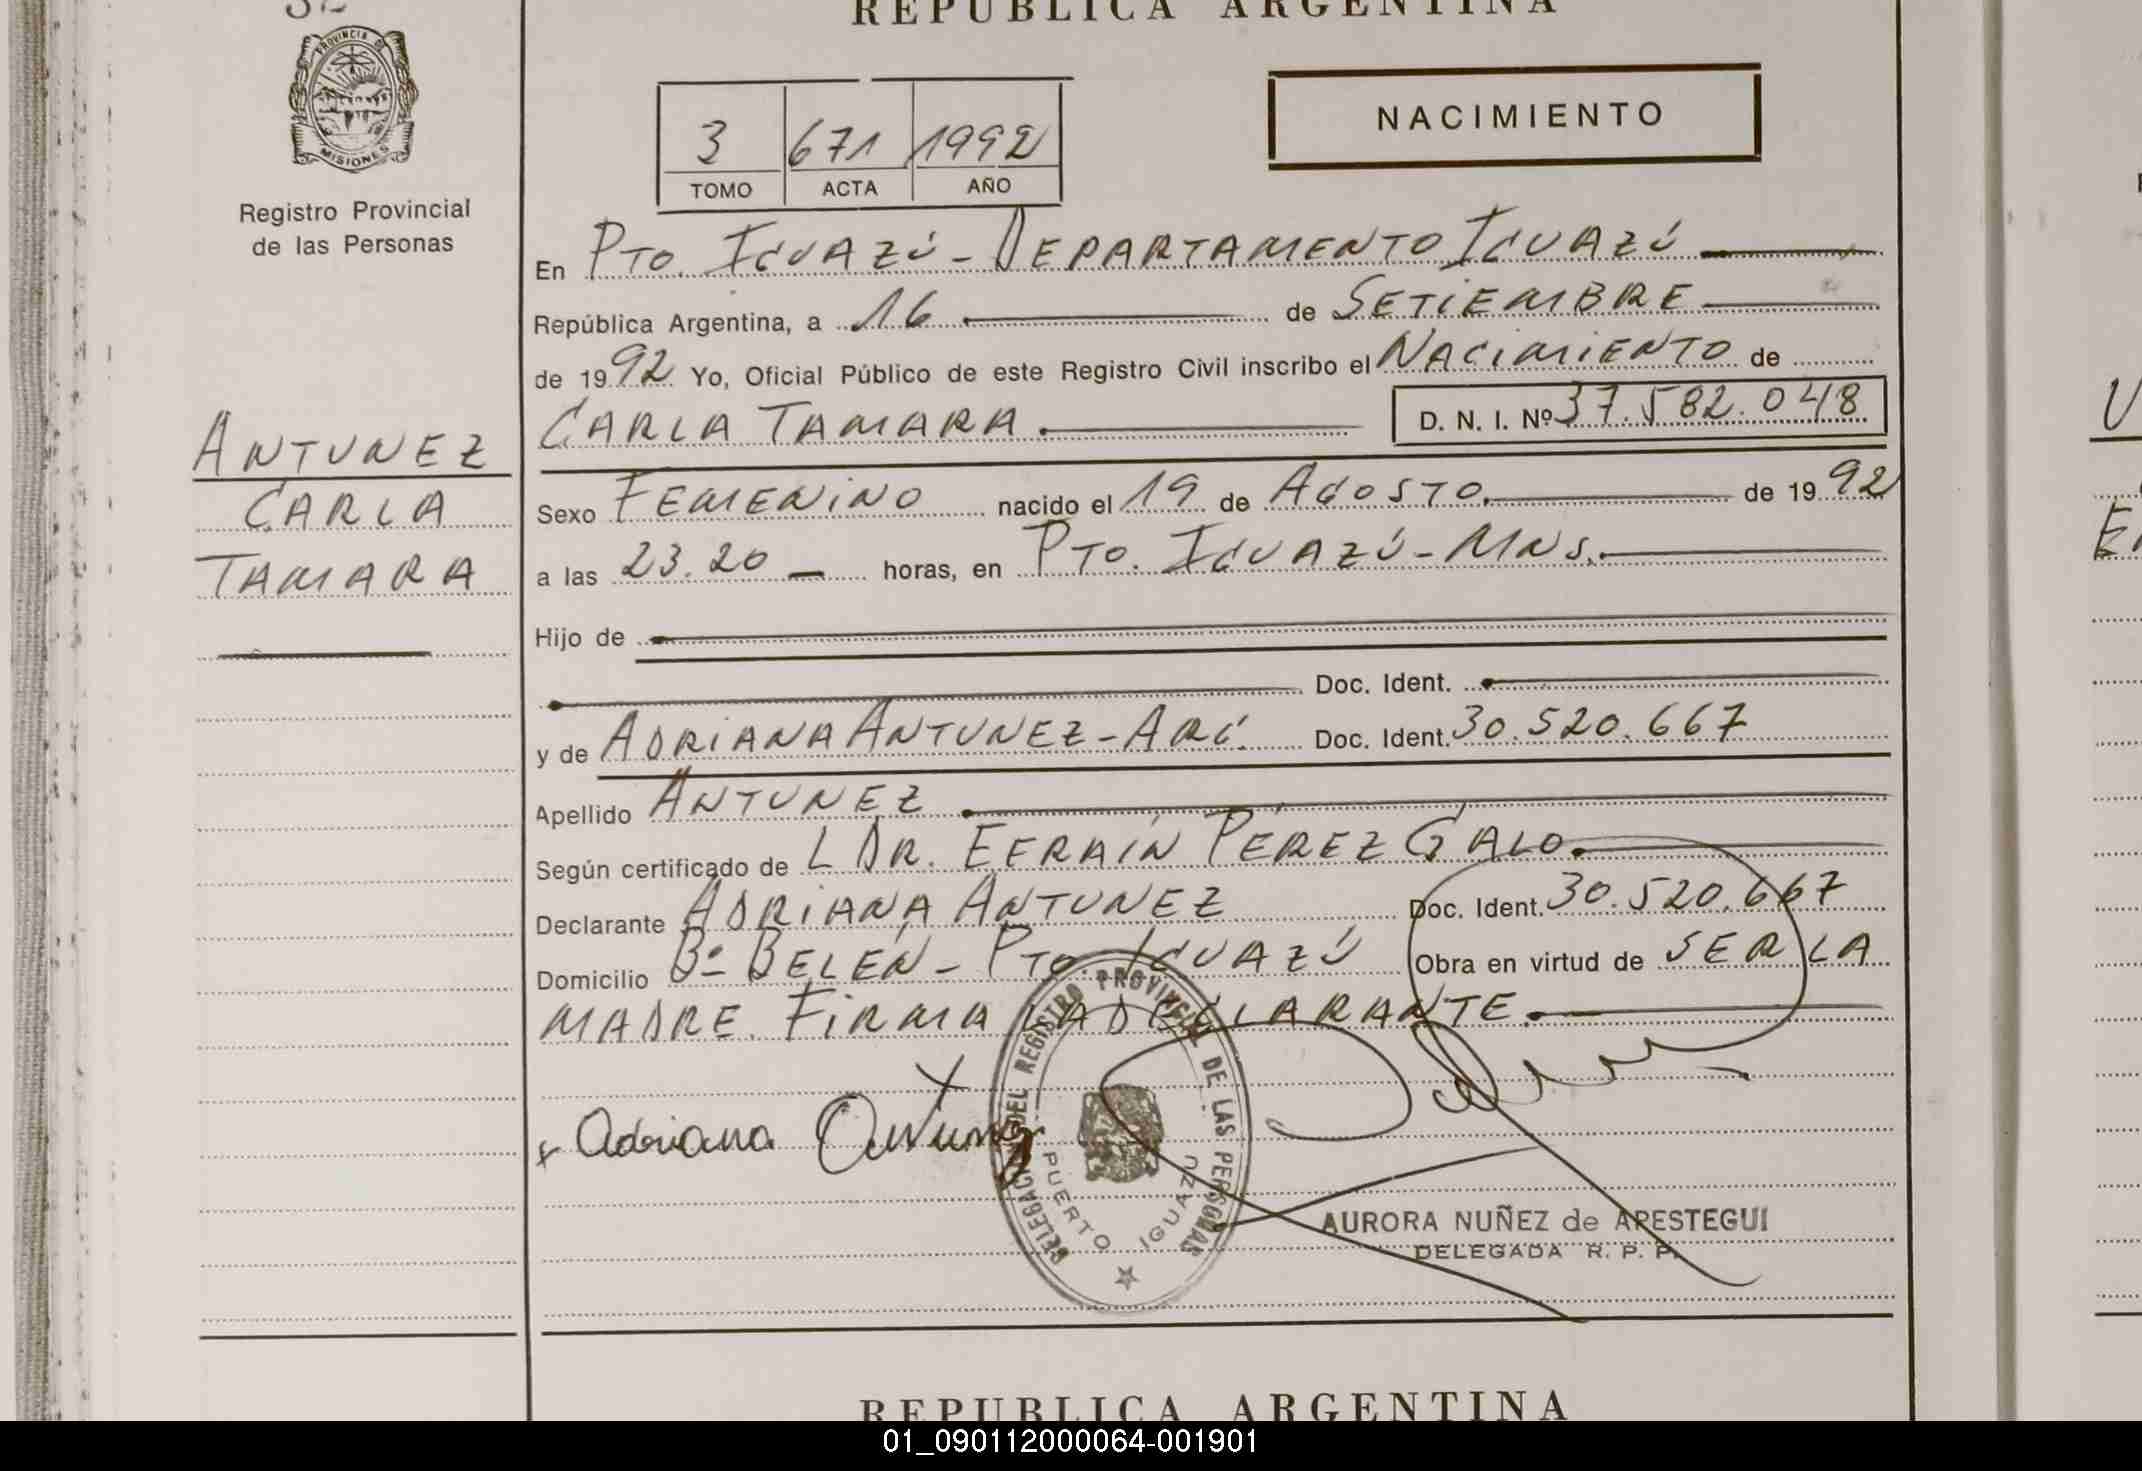 REPUBLICA ARGENTINA
PROVINCIA DE
MISIONES
Registro Provincial
de las Personas
NACIMIENTO
3 671 1992
TOMO ACTA AÑO
En PTO. IGUAZÚ - DEPARTAMENTO IGUAZÚ
República Argentina, a 16 de SETIEMBRE
de 1992 Yo, Oficial Público de este Registro Civil inscribo el NACIMIENTO de
CARLA TAMARA. D. N. I. Nº 37.582.048
ANTUNEZ
CARLA
TAMARA
Sexo FEMENINO nacido el 19 de AGOSTO. de 1992
a las 23.20 horas, en PTO. IGUAZÚ - MNS.
Hijo de
Doc. Ident.
y de ADRIANA ANTUNEZ - ARG. Doc. Ident. 30.520.667
Apellido ANTUNEZ
Según certificado de L DR. EFRAÍN PÉREZ GALO.
Declarante ADRIANA ANTUNEZ Doc. Ident. 30.520.667
Domicilio Bº BELÉN - PTO. IGUAZÚ Obra en virtud de SER LA
MADRE. FIRMA LA DECLARANTE.
Adriana Antunez
DELEGACION DEL REGISTRO PROVINCIAL DE LAS PERSONAS
PUERTO IGUAZU
AURORA NUÑEZ de ARESTEGUI
DELEGADA R. P. P.
REPUBLICA ARGENTINA
01_090112000064-001901